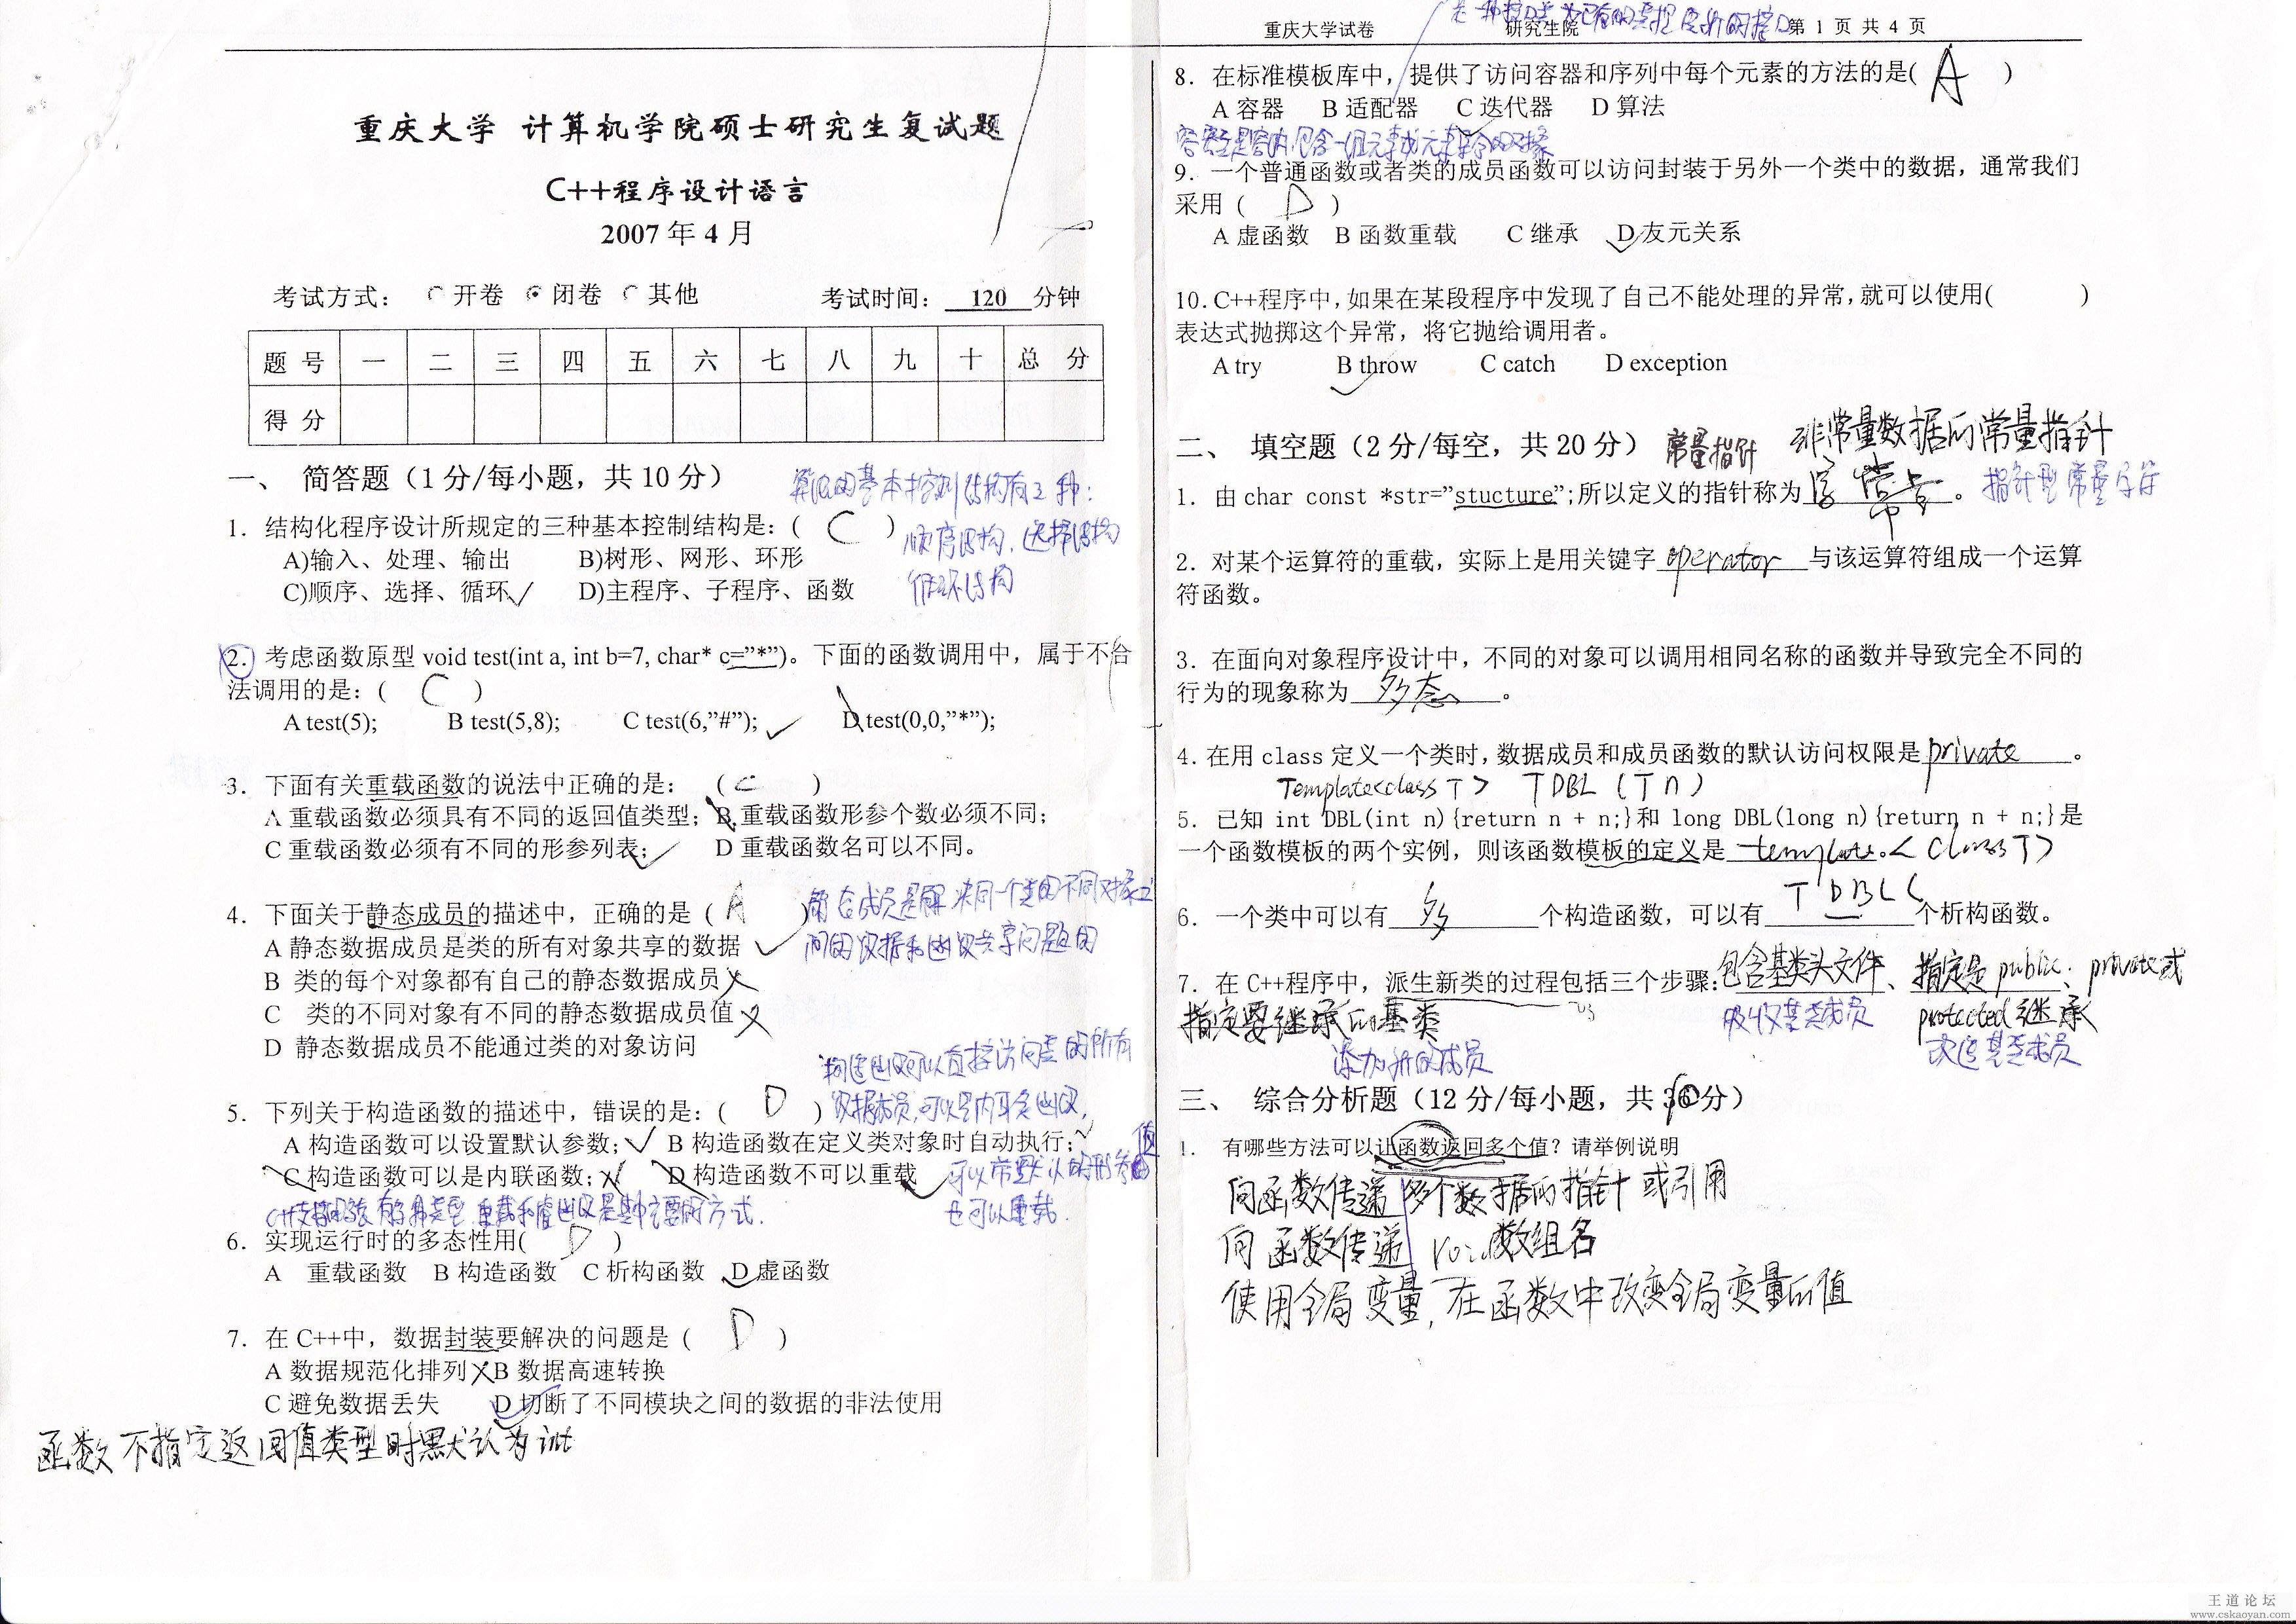 重庆大学 计算机学院硕士研究生复试题
C++程序设计语言
2007 年 4 月
考试方式： 开卷 闭卷 其他 考试时间： 120 分钟
题 号 一 二 三 四 五 六 七 八 九 十 总 分
得 分
一、 简答题（1 分/每小题，共 10 分）
算法的基本控制结构有三种：
顺序结构，选择结构
循环结构
1. 结构化程序设计所规定的三种基本控制结构是：( C )
A)输入、处理、输出 B)树形、网形、环形
C)顺序、选择、循环 D)主程序、子程序、函数
2. 考虑函数原型 void test(int a, int b=7, char* c=”*”)。下面的函数调用中，属于不合
法调用的是：( C )
A test(5); B test(5,8); C test(6,”#”); D test(0,0,”*”);
3. 下面有关重载函数的说法中正确的是： ( C )
A 重载函数必须具有不同的返回值类型； B.重载函数形参个数必须不同；
C 重载函数必须有不同的形参列表； D 重载函数名可以不同。
4. 下面关于静态成员的描述中，正确的是 ( A )
静态成员是解决同一个类的不同对象之
间的数据和函数共享问题的
A 静态数据成员是类的所有对象共享的数据
B 类的每个对象都有自己的静态数据成员
C 类的不同对象有不同的静态数据成员值
D 静态数据成员不能通过类的对象访问
构造函数可以直接访问类的所有
数据成员,可以是内联函数,
可以带默认的形参值
也可以重载.
5. 下列关于构造函数的描述中，错误的是：( D )
A 构造函数可以设置默认参数； B 构造函数在定义类对象时自动执行；
C 构造函数可以是内联函数； D 构造函数不可以重载
6. 实现运行时的多态性用( D )
A 重载函数 B 构造函数 C 析构函数 D 虚函数
7. 在 C++中，数据封装要解决的问题是 ( D )
A 数据规范化排列 B 数据高速转换
C 避免数据丢失 D 切断了不同模块之间的数据的非法使用
函数不指定返回值类型时默认为 int
重庆大学试卷 研究生院 第 1 页 共 4 页
8. 在标准模板库中，提供了访问容器和序列中每个元素的方法的是( A )
A 容器 B 适配器 C 迭代器 D 算法
容器类是容纳,包含一组元素或元素集合的对象
9. 一个普通函数或者类的成员函数可以访问封装于另外一个类中的数据，通常我们
采用 ( D )
A 虚函数 B 函数重载 C 继承 D 友元关系
10. C++程序中，如果在某段程序中发现了自己不能处理的异常，就可以使用( )
表达式抛掷这个异常，将它抛给调用者。
A try B throw C catch D exception
二、 填空题（2 分/每空，共 20 分） 常量指针 非常量数据的常量指针
1. 由 char const *str=”stucture”;所以定义的指针称为 。 指针型常量字符
2. 对某个运算符的重载，实际上是用关键字 operator 与该运算符组成一个运算
符函数。
3. 在面向对象程序设计中，不同的对象可以调用相同名称的函数并导致完全不同的
行为的现象称为 多态 。
4. 在用 class 定义一个类时，数据成员和成员函数的默认访问权限是 private 。
Template<class T> T DBL (T n)
5. 已知 int DBL(int n){return n + n;}和 long DBL(long n){return n + n;}是
一个函数模板的两个实例，则该函数模板的定义是 template < class T>
T DBL(
6. 一个类中可以有 多 个构造函数，可以有 一 个析构函数。
7. 在 C++程序中，派生新类的过程包括三个步骤:包含基类头文件、指定是 public、private或
protected继承
指定要继承的基类
吸收基类成员
改造基类成员
添加新的成员
三、 综合分析题（12 分/每小题，共 36分）
1. 有哪些方法可以让函数返回多个值？请举例说明
向函数传递多个数据的指针或引用
向函数传递 数组名
使用全局变量,在函数中改变全局变量的值
王道论坛
www.cskaoyan.com